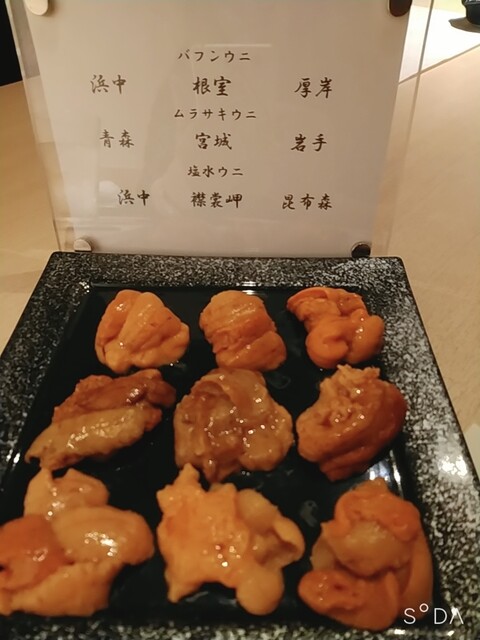 バフンウニ
浜中 根室 厚岸
ムラサキウニ
青森 宮城 岩手
塩水ウニ
浜中 襟裳岬 昆布森
SODA